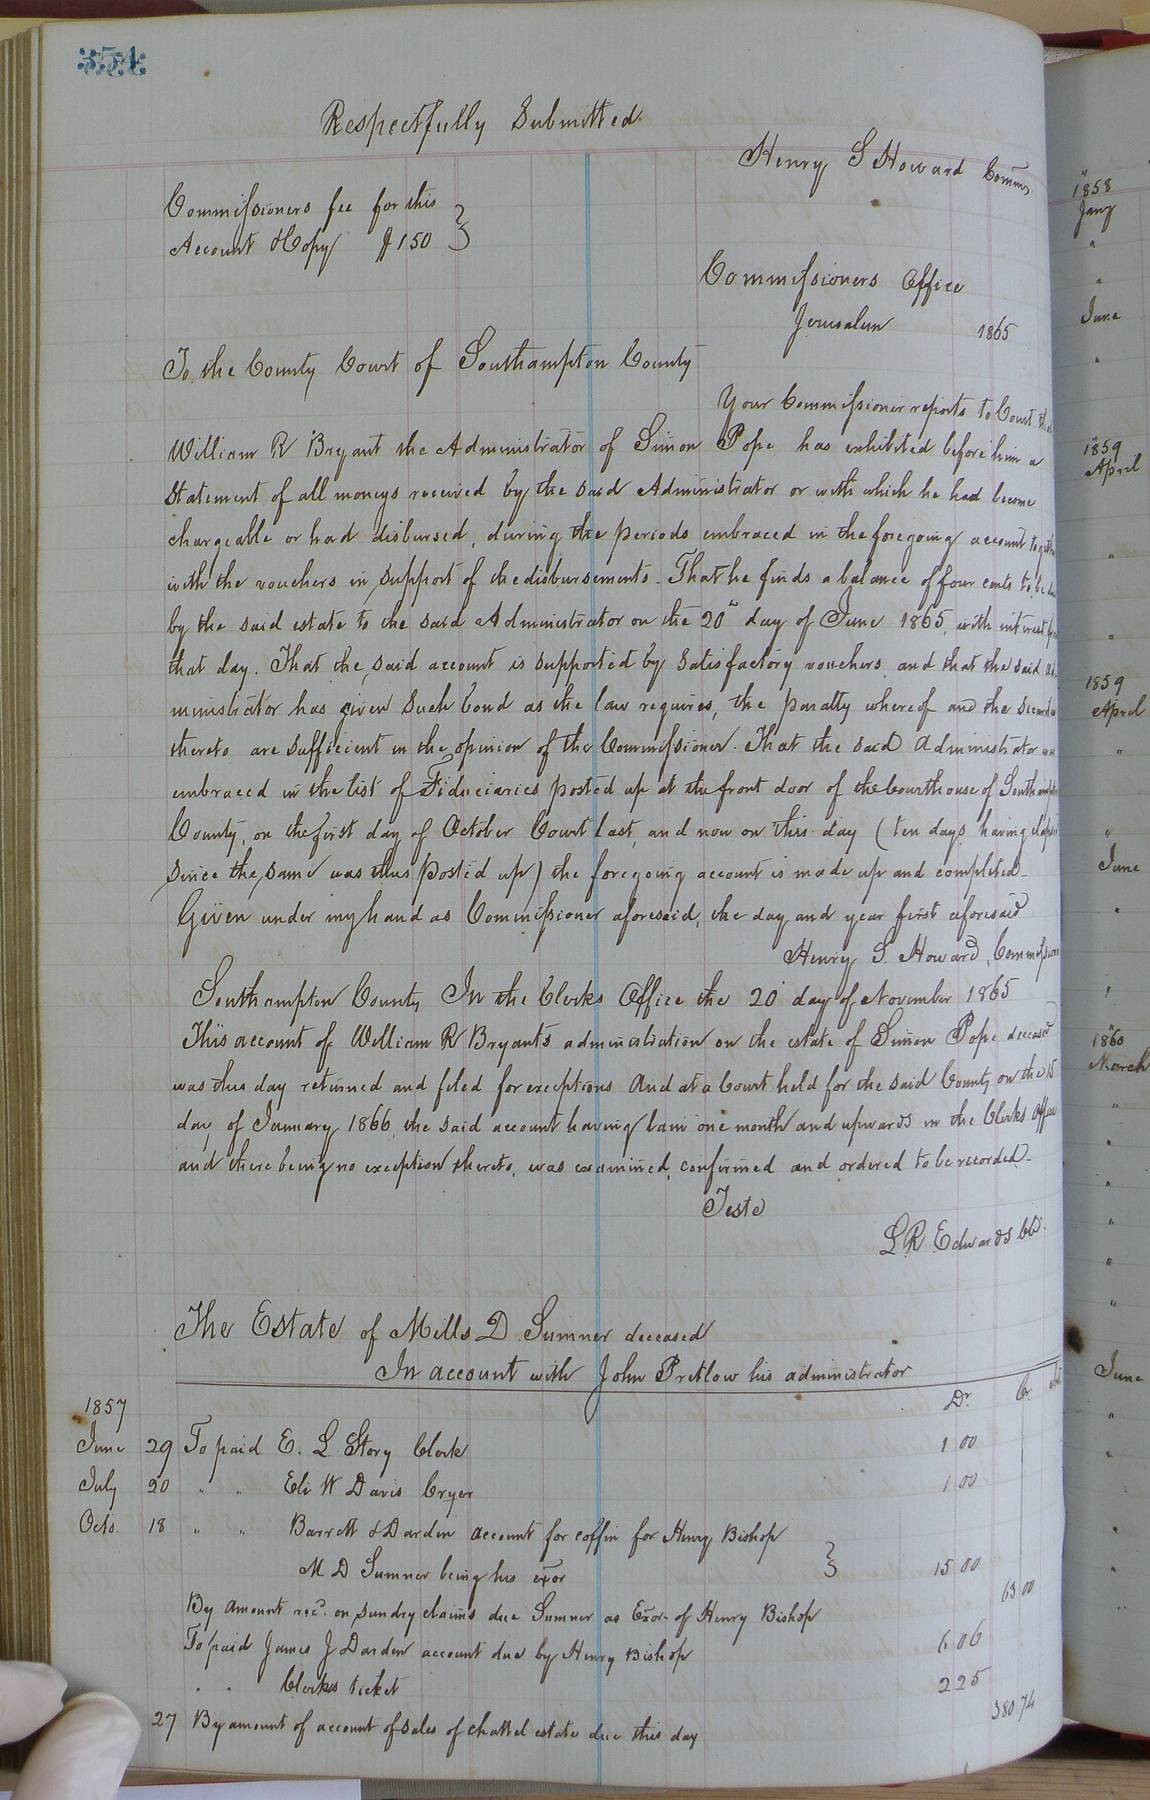 354
Respectfully Submitted.
Henry S Howard Commr
Commissioners fee for this
Account & Copy $1 50
Commissioners Office
Jerusalem 1865
To the County Court of Southampton County
Your Commissioner reports to Court that
William R Bryant the Administrator of Simon Pope has exhibited before him a
Statement of all moneys received by the said Administrator or with which he had become
chargeable or had disbursed, during the periods embraced in the foregoing account together
with the vouchers in support of the disbursements. That he finds a balance of four cents to be due
by the said estate to the said Administrator on the 20th day of June 1865, with interest from
that day. That the said account is supported by satisfactory vouchers, and that the said Ad-
ministrator has given such bond as the law requires, the penalty whereof and the securities
thereto are sufficient in the opinion of the Commissioner. That the said Administrator was
embraced in the list of Fiduciaries posted up at the front door of the Courthouse of Southampton
County, on the first day of October Court last, and now on this day (ten days having elapsed
since the same was thus posted up) the foregoing account is made up and completed-
Given under my hand as Commissioner aforesaid, the day and year first aforesaid
Henry S. Howard, Commissioner
Southampton County In the Clerks Office the 20 day of November 1865
This account of William R Bryants administration on the estate of Simon Pope deceased
was this day returned and filed for exceptions And at a Court held for the said County on the 15
day of January 1866, the said account having lain one month and upwards in the Clerks Office
and there being no exception thereto, was examined, confirmed and ordered to be recorded.
Teste
L R Edwards Clk.
The Estate of Mills D Sumner deceased
In account with John Pretlow his administrator
1857 Dr. Cr.
June 29 To paid E. L. Story Clerk 1 00
July 20 " " Eli W Davis Cryer 1 00
Octo. 18 " " Barrett & Darden account for coffin for Henry Bishop
M D Sumner being his exor 15 00
By amount recd. on sundry claims due Sumner as Exor. of Henry Bishop 63 00
To paid James J Darden account due by Henry Bishop 6 06
" " Clerks ticket 2 25
27 By amount of account of sales of chattel estate due this day 380 74
1858
Jany
"
"
June
"
1859
April
"
"
1859
April
"
"
June
"
"
1860
March
"
"
"
"
"
"
June
"
"
"
"
"